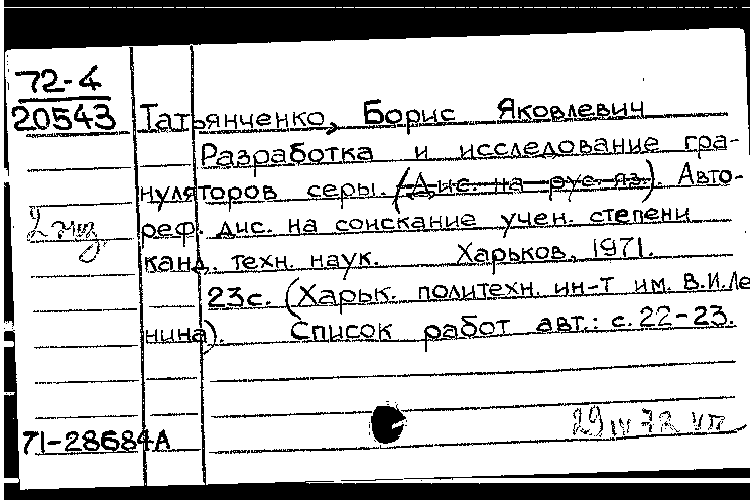 72-4
20543
Татьянченко, Борис Яковлевич
Разработка и исследование гра-
нуляторов серы. (Дис. на рус. яз). Авто-
реф. дис. на соискание учен. степени
2 экз
канд. техн. наук. Харьков, 1971.
23с. (Харьк. политехн. ин-т им. В.И.Ле
нина). Список работ авт.: с. 22-23.
71-28684А
29 IV 72